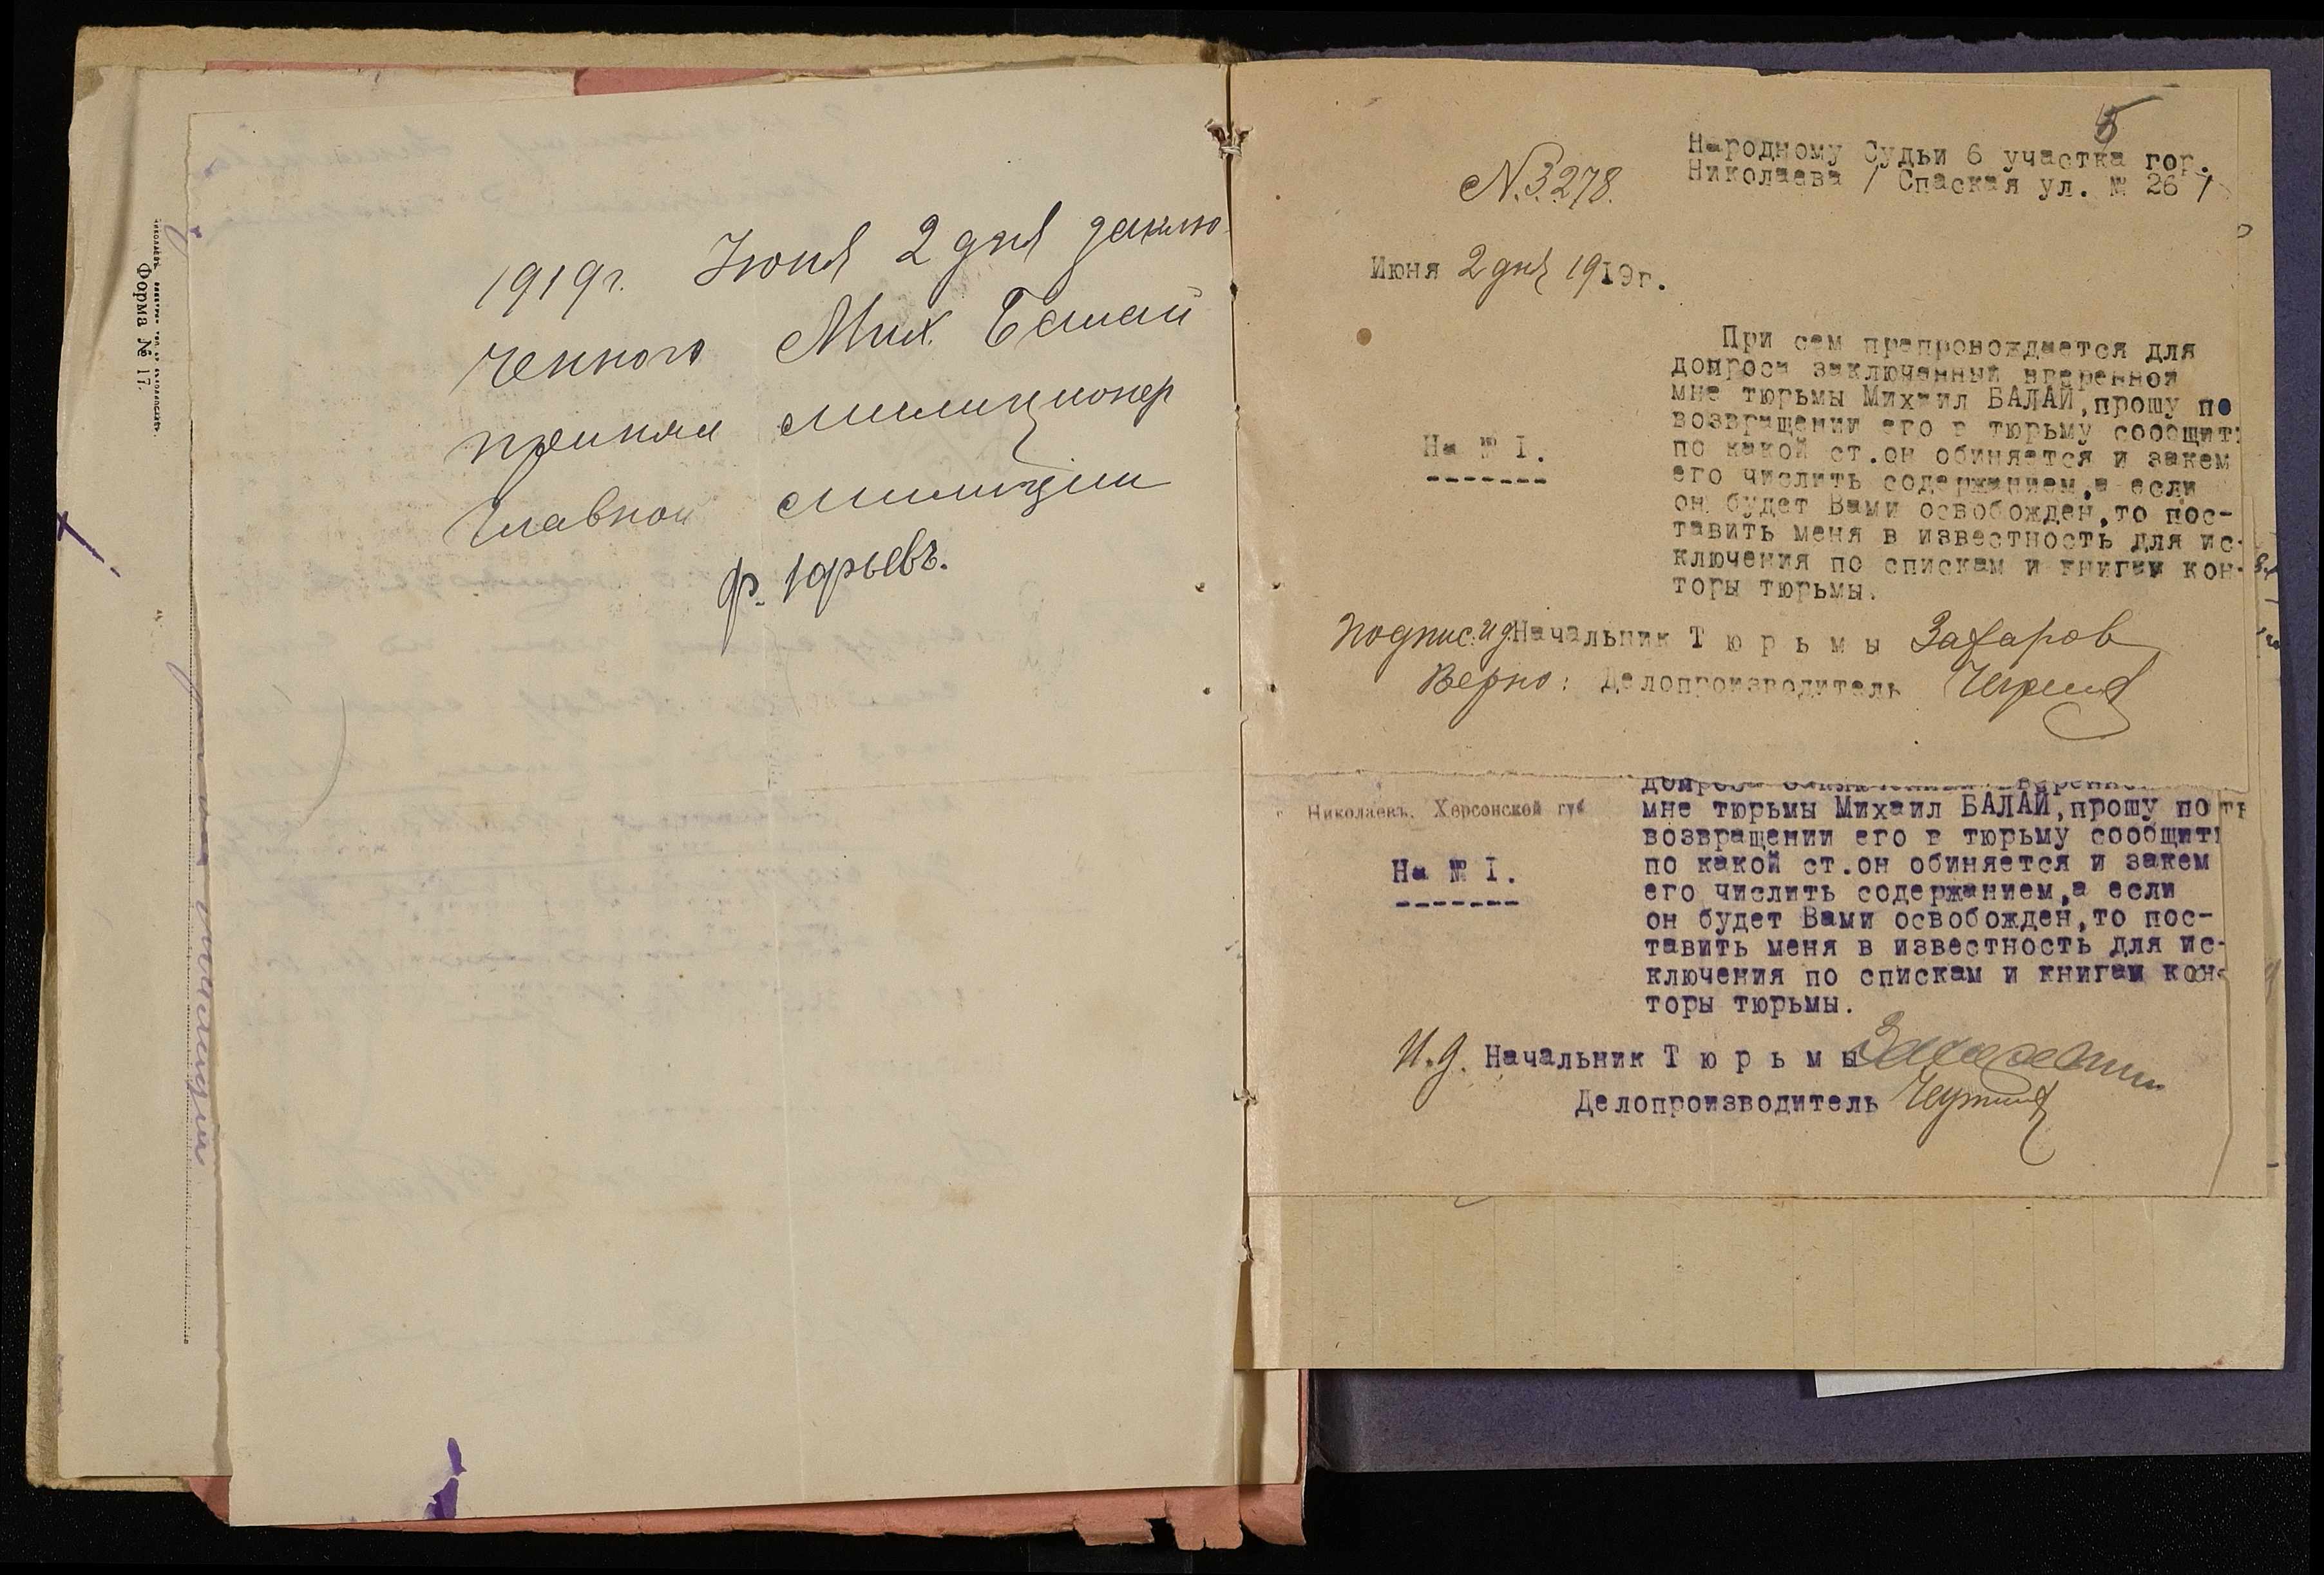 Форма № 17.
1919г. Июня 2 дня заклю
ченного Мих. Балай
принял милиционер
Главной милиции
Ф. Юрьевъ.
5
N. 3278.
Народному Судьи 6 участка гор.
Николаева / Спаская ул. № 26 /
Июня 2 дня 1919г.
При сем препровождается для
допроса заключенный вверенной
мне тюрьмы Михаил БАЛАЙ, прошу по
возвращении его в тюрьму сообщить
На № I.
по какой ст. он обиняется и закем
его числить содержанием, а если
он будет Вами освобожден, то пос-
тавить меня в известность для ис-
ключения по спискам и книгам кон-
торы тюрьмы.
Подпис: И д Начальник Т ю р ь м ы Захаров
Верно: Делопроизводитель
Николаевъ, Херсонской губ
мне тюрьмы Михаил БАЛАЙ, прошу по
возвращении его в тюрьму сообщить
На № I.
по какой ст. он обиняется и закем
его числить содержанием, а если
он будет Вами освобожден, то пос-
тавить меня в известность для ис-
ключения по спискам и книгам кон-
торы тюрьмы.
И. д. Начальник Т ю р ь м ы
Делопроизводитель